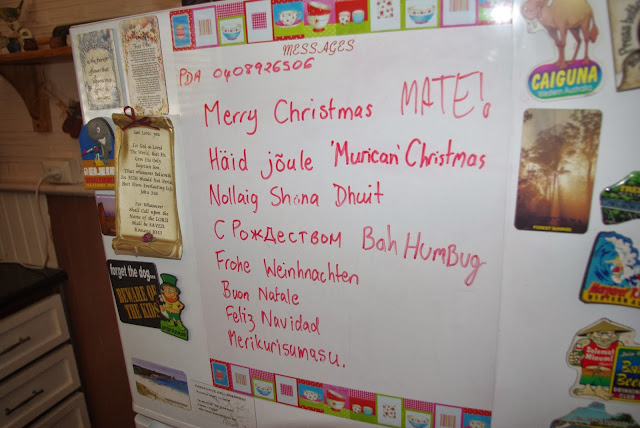 MESSAGES
PDA 0408926506
Merry Christmas MATE!
Häid jõule 'Murican' Christmas
Nollaig Shona Dhuit
С Рождеством Bah HumBug
Frohe Weinhnachten
Buon Natale
Feliz Navidad
Merikurisumasu.
God Loves you
For God so Loved
The World, that He
Gave His Only
Begotten Son,
That whosoever Believeth
In HIM Should Not Perish
But Have Everlasting Life
John 3:16
For Whosoever
Shall Call upon the
Name of the LORD
Shall be SAVED
Romans 10:13
forget the dog...
BEWARE OF
THE KIDS
CAIGUNA
Western Australia
FOREST SUNRISE
Selamat
Minum